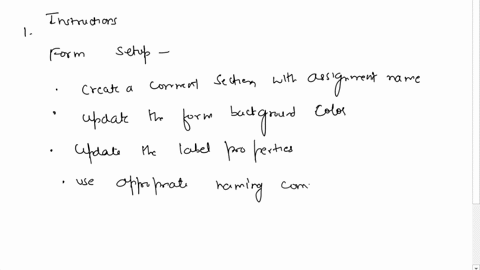 1. Instructions
Form Setup —
• Create a comment section with assignment name
• update the form background color
• update the label properties
• use appropriate naming com